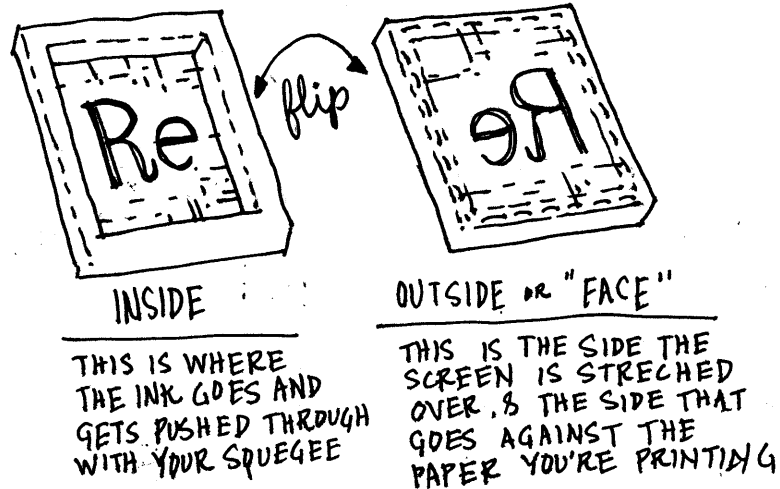 Re
flip
Re
INSIDE
THIS IS WHERE
THE INK GOES AND
GETS PUSHED THROUGH
WITH YOUR SQUEGEE
OUTSIDE OR "FACE"
THIS IS THE SIDE THE
SCREEN IS STRECHED
OVER, & THE SIDE THAT
GOES AGAINST THE
PAPER YOU'RE PRINTING